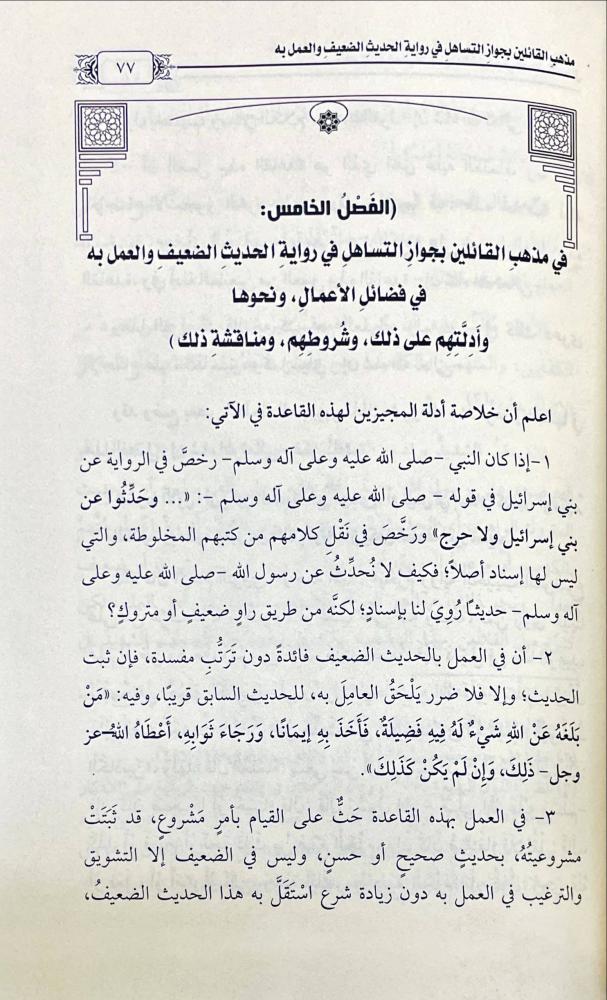 مذهب القائلين بجواز التساهل في رواية الحديث الضعيف والعمل به
٧٧
(الفَصْلُ الخامس:
في مذهبِ القائلين بجوازِ التساهلِ في روايةِ الحديثِ الضعيفِ والعمل به
في فضائلِ الأعمالِ، ونحوها
وأَدِلَّتِهم على ذلك، وشُروطِهِم، ومناقشةِ ذلك)
اعلم أن خلاصة أدلة المجيزين لهذه القاعدة في الآتي:
١-إذا كان النبي -صلى الله عليه وعلى آله وسلم- رخصَّ في الرواية عن
بني إسرائيل في قوله - صلى الله عليه وعلى آله وسلم -: «... وحَدِّثُوا عن
بني إسرائيل ولا حرج» ورَخَّصَ في نَقْلِ كلامهم من كتبهم المخلوطة، والتي
ليس لها إسناد أصلاً؛ فكيف لا نُحدِّثُ عن رسول الله -صلى الله عليه وعلى
آله وسلم- حديثًا رُوِيَ لنا بإسنادٍ؛ لكنَّه من طريق راوٍ ضعيفٍ أو متروكٍ؟
٢- أن في العمل بالحديث الضعيف فائدةً دون تَرَتُّبِ مفسدة، فإن ثبت
الحديث؛ وإلا فلا ضرر يَلْحَقُ العامِلَ به، للحديث السابق قريبًا، وفيه: «مَنْ
بَلَغَهُ عَنْ اللهِ شَيْءٌ لَهُ فِيهِ فَضِيلَةٌ، فَأَخَذَ بِهِ إِيمَانًا، وَرَجَاءَ ثَوَابِهِ، أَعْطَاهُ اللهُ-عز
وجل- ذَلِكَ، وَإِنْ لَمْ يَكُنْ كَذَلِكَ».
٣- في العمل بهذه القاعدة حَثٌّ على القيام بأمرٍ مَشْروعٍ، قد ثَبَتَتْ
مشروعيتُهُ، بحديثٍ صحيحٍ أو حسنٍ، وليس في الضعيف إلا التشويق
والترغيب في العمل به دون زيادة شرع اسْتَقَلَّ به هذا الحديث الضعيفُ،